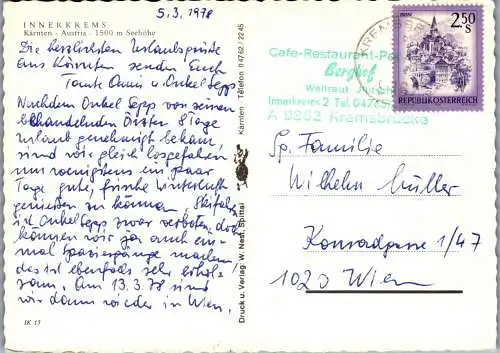 5.3.1978
INNERKREMS
Kärnten - Austria - 1500 m Seehöhe
Die herzlichsten Urlaubsgrüße
aus Kärnten senden Euch
Tante Omi u Onkel Sepp
Nachdem Onkel Sepp von seinem
behandelnden Ärzten 8 Tage
Urlaub genehmigt bekam,
sind wir gleich losgefahren
um wenigstens ein paar
Tage gute, frische Winterluft
genießen zu können. Skifahren
ist Onkel Sepp zwar verboten, doch
können wir ja auch ein-
mal Spaziergänge machen,
das ist ebenfalls sehr erhol-
sam. Am 13.3.78 sind
wir dann wieder in Wien.
IK 13
Druck u. Verlag W. Neff, Spittal
Kärnten Telefon 04762/2245
2.50
S
REPUBLIK ÖSTERREICH
Cafe-Restaurant-Pe
Berghof
Waltraut
Innerkrems 2 Tel. 04736
A 9862 Kremsbrücke
Sp. Familie
Wilhelm Müller
Konradgasse 1/47
1020 Wien